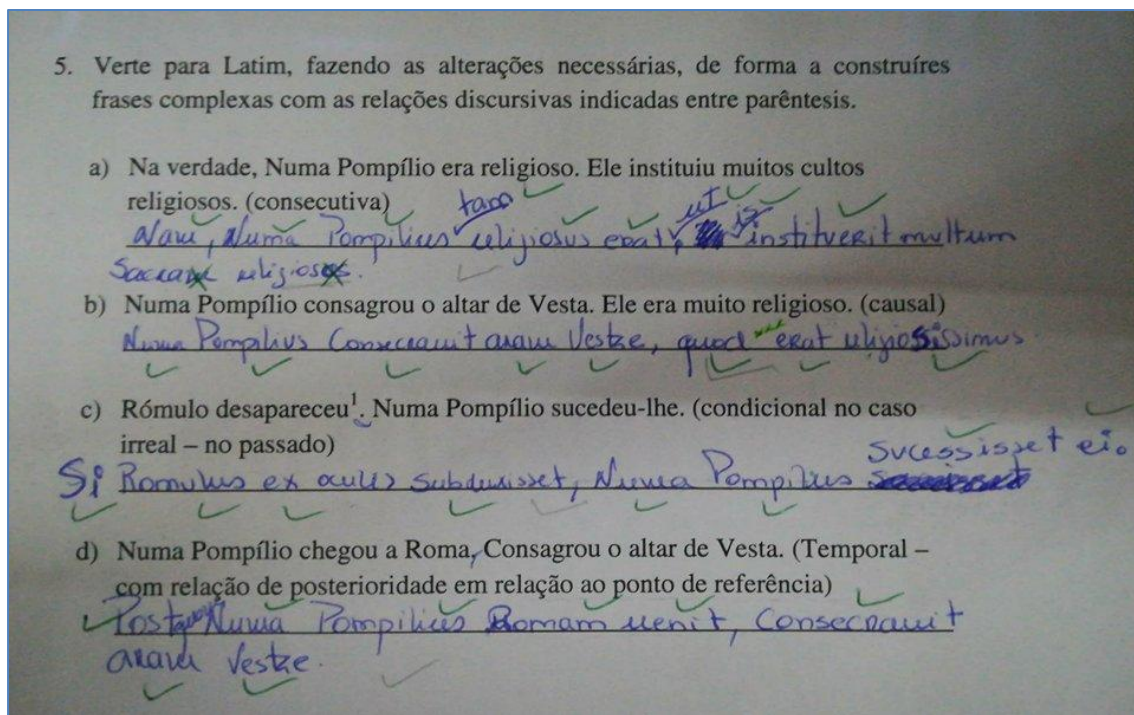 5. Verte para Latim, fazendo as alterações necessárias, de forma a construíres
frases complexas com as relações discursivas indicadas entre parêntesis.
a) Na verdade, Numa Pompílio era religioso. Ele instituiu muitos cultos
religiosos. (consecutiva)
tam ut is
Nam, Numa Pompilius religiosus erat, instituerit multum
religiosos.
b) Numa Pompílio consagrou o altar de Vesta. Ele era muito religioso. (causal)
Numa Pompilius Consecrauit aram Vestae, quod erat religiosissimus
c) Rómulo desapareceu¹. Numa Pompílio sucedeu-lhe. (condicional no caso
irreal – no passado)
sucessisset ei.
Si Romulus ex oculis subduxisset, Numa Pompilius
d) Numa Pompílio chegou a Roma, Consagrou o altar de Vesta. (Temporal –
com relação de posterioridade em relação ao ponto de referência)
Postquam Numa Pompilius Romam uenit, Consecrauit
aram Vestae.